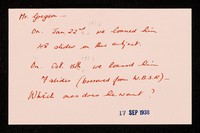 Mr. Gregson —
On Jan 22nd, we loaned him
48 slides on this subject.
On Oct. 18th, we loaned him
7 slides (borrowed from W.B.S.R.) —
Which ones does he want?
17 SEP 1938